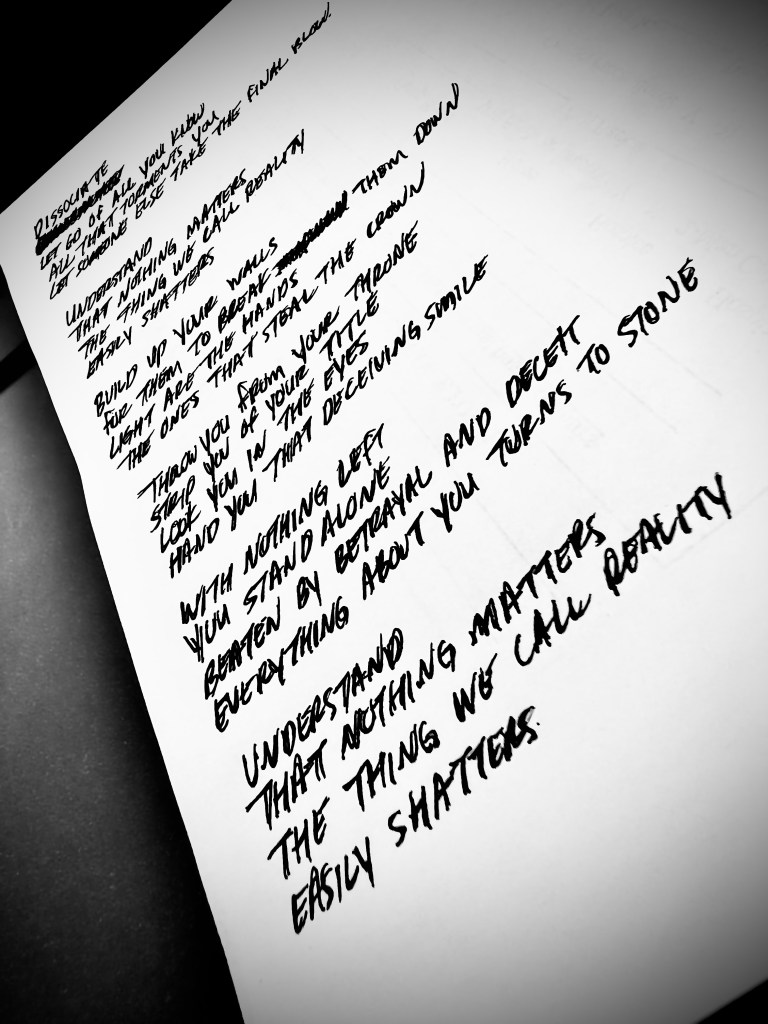 DISSOCIATE
LET GO OF ALL YOU KNOW
ALL THAT TORMENTS YOU
LET SOMEONE ELSE TAKE THE FINAL BLOW.
UNDERSTAND
THAT NOTHING MATTERS
THE THING WE CALL REALITY
EASILY SHATTERS
BUILD UP YOUR WALLS
FOR THEM TO BREAK THEM DOWN
LIGHT ARE THE HANDS
THE ONES THAT STEAL THE CROWN
THROW YOU FROM YOUR THRONE
STRIP YOU OF YOUR TITLE
LOOK YOU IN THE EYES
HAND YOU THAT DECEIVING SMILE
WITH NOTHING LEFT
YOU STAND ALONE
BEATEN BY BETRAYAL AND DECEIT
EVERYTHING ABOUT YOU TURNS TO STONE
UNDERSTAND
THAT NOTHING MATTERS
THE THING WE CALL REALITY
EASILY SHATTERS.